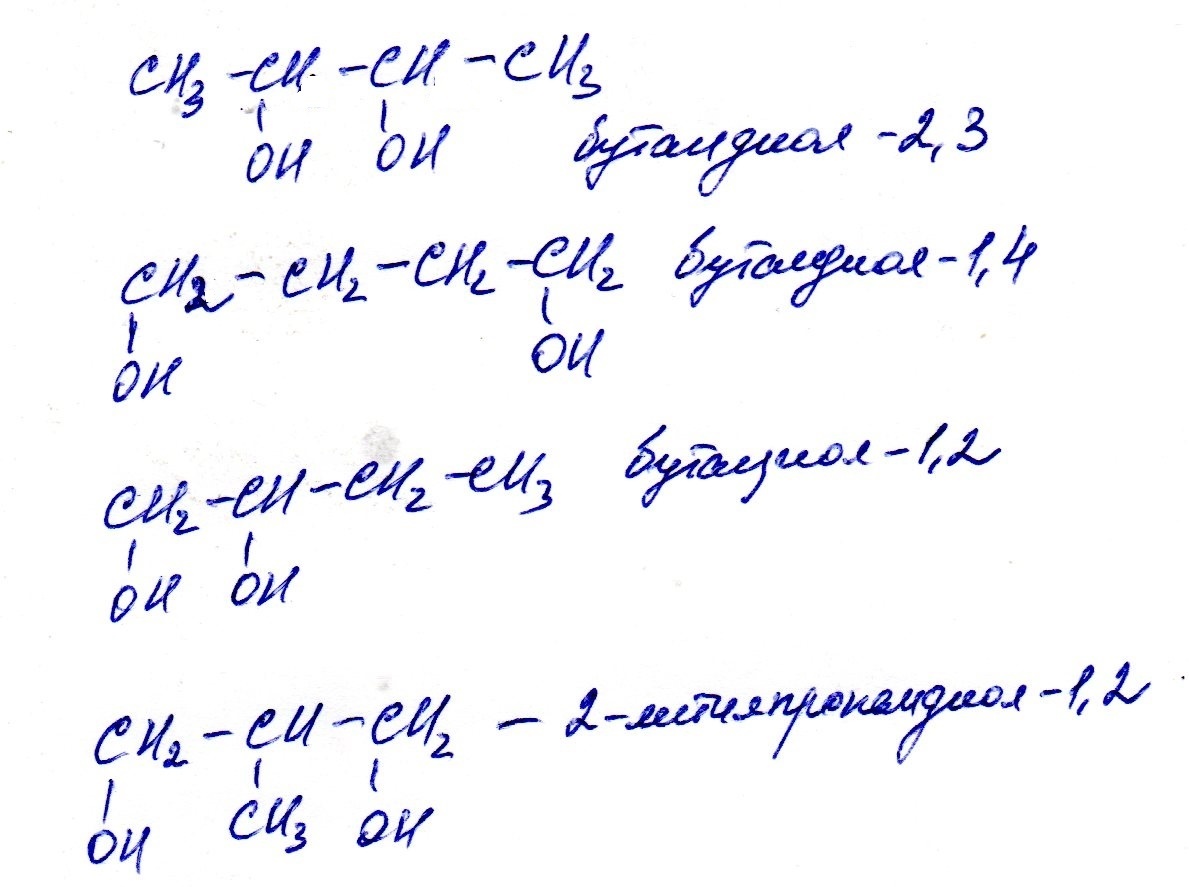 CH₃ – CH – CH – CH₃
OH OH бутандиол – 2, 3
CH₂ – CH₂ – CH₂ – CH₂ бутандиол – 1,4
OH OH
CH₂ – CH – CH₂ – CH₃ бутандиол – 1,2
OH OH
CH₂ – CH – CH₂ – 2-метилпропандиол – 1,2
OH CH₃ OH